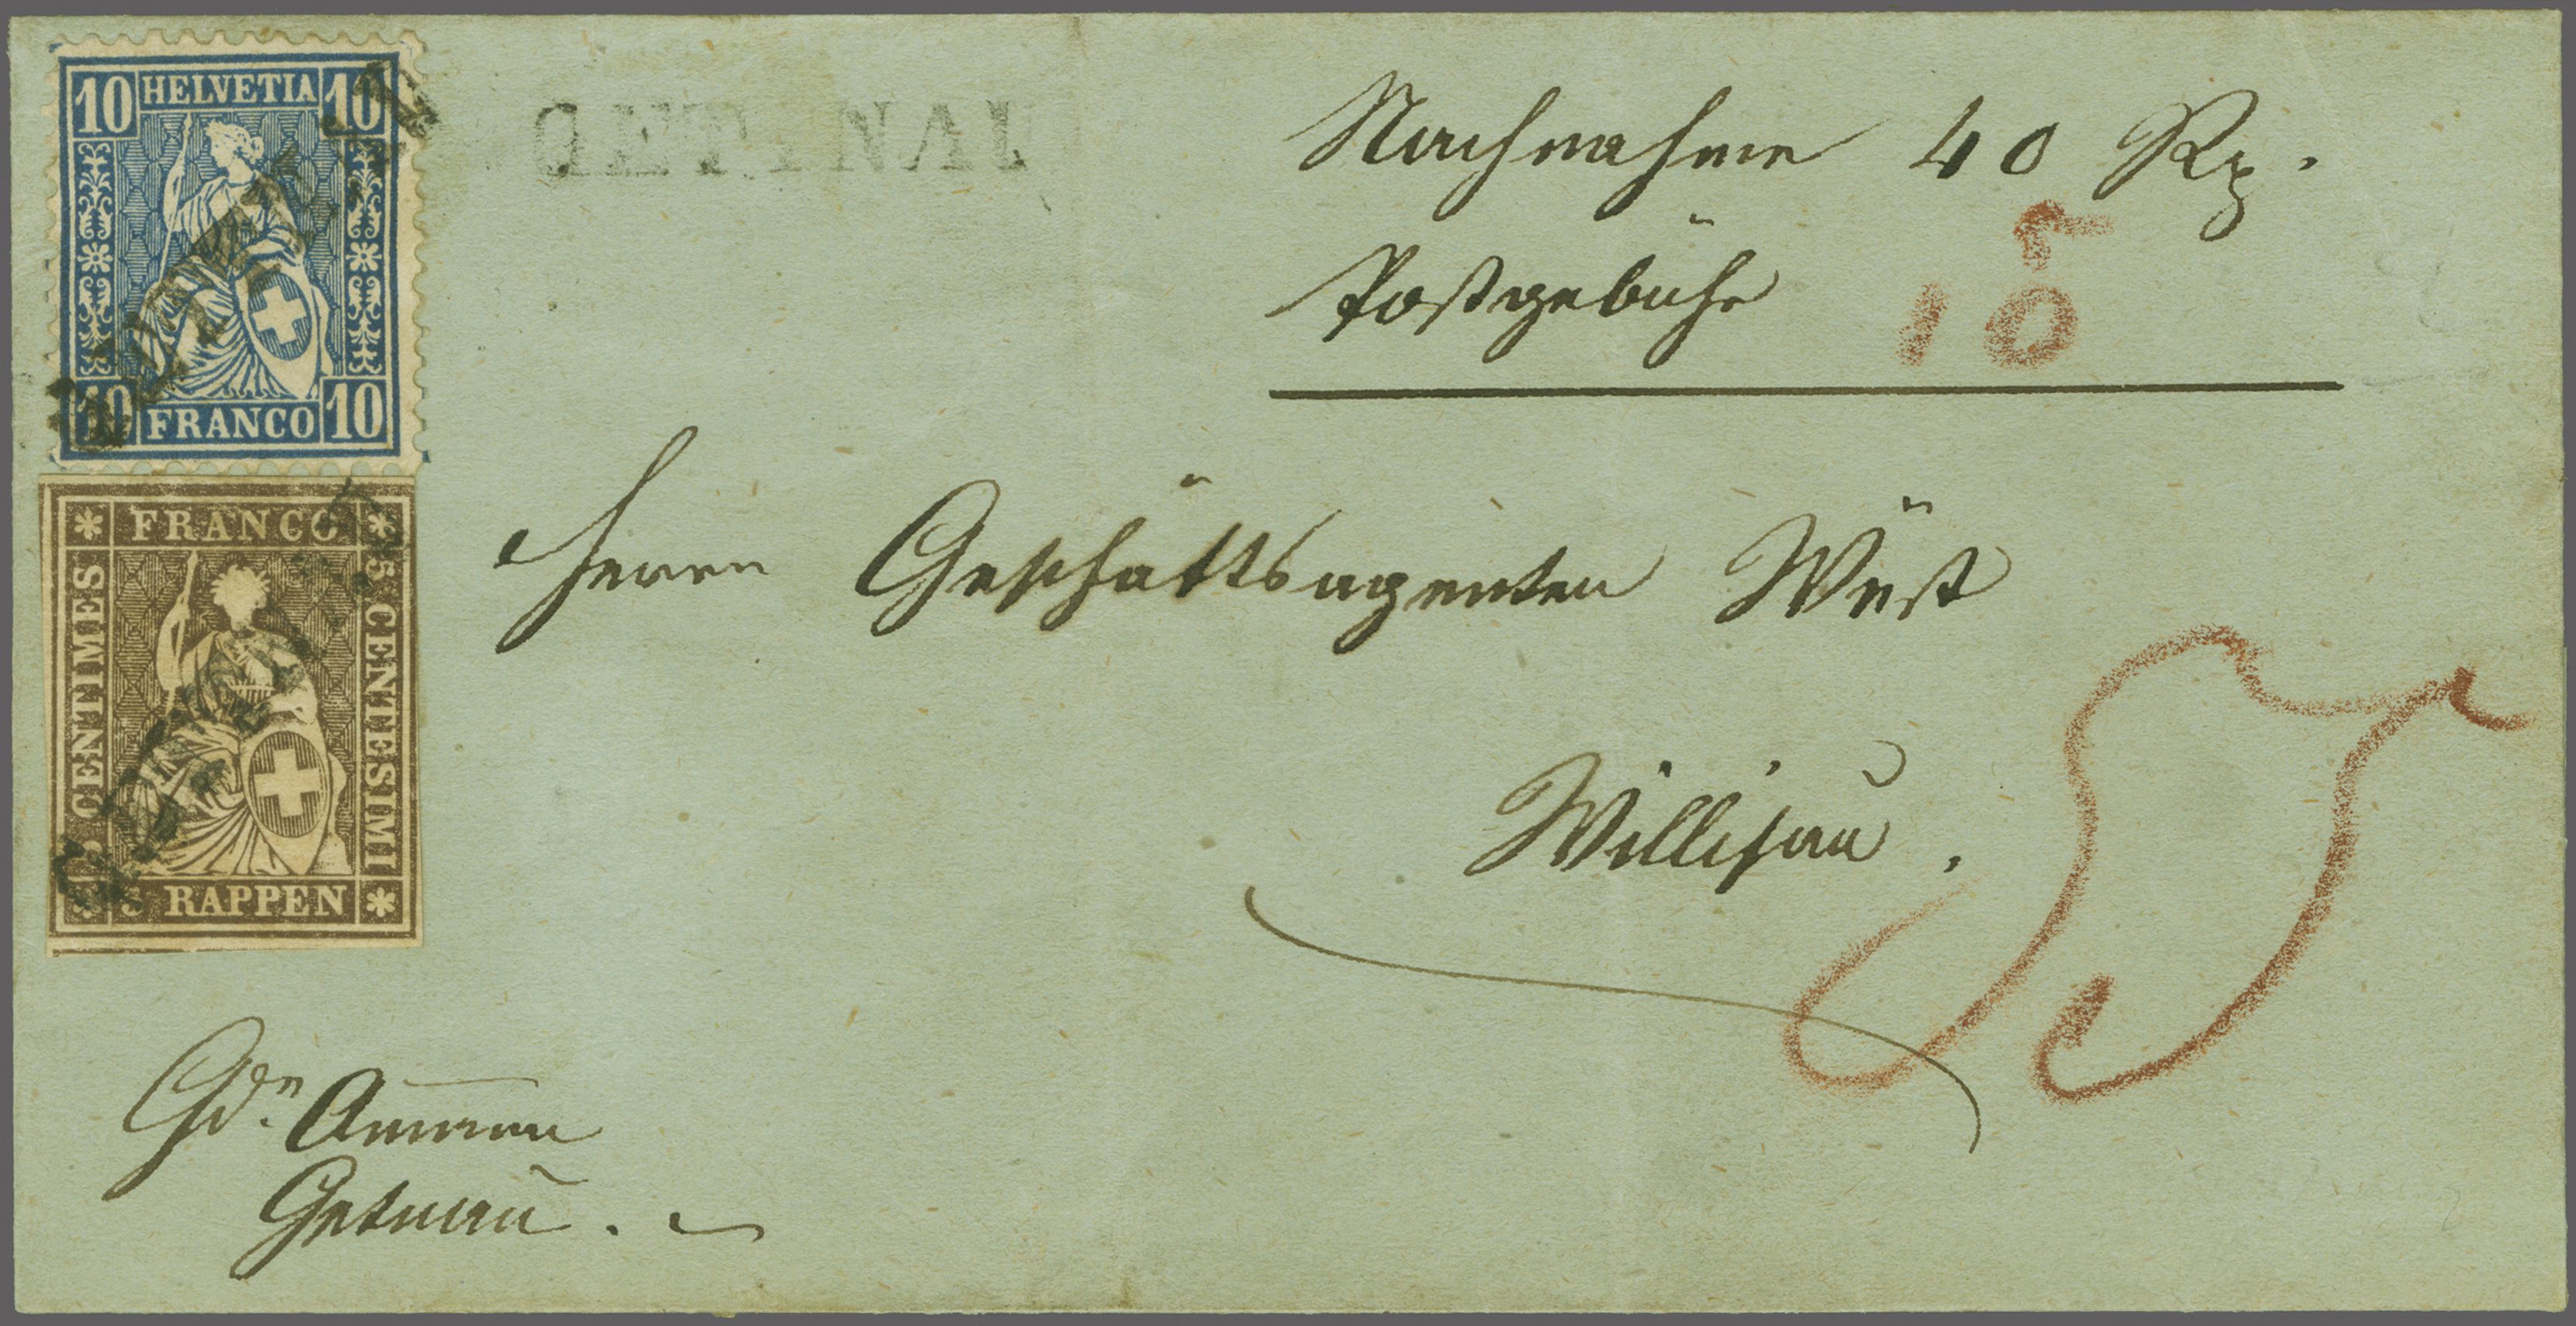 10 HELVETIA 10
10 FRANCO 10
FRANCO
CENTIMES
5 CENTESIMI
5 RAPPEN
Nachnahme 40 Rp.
5
Postgebühr 10
Herrn Geschäftsagenten Wüst
Willisau.
55
Gdr Ammann
Gettnau.